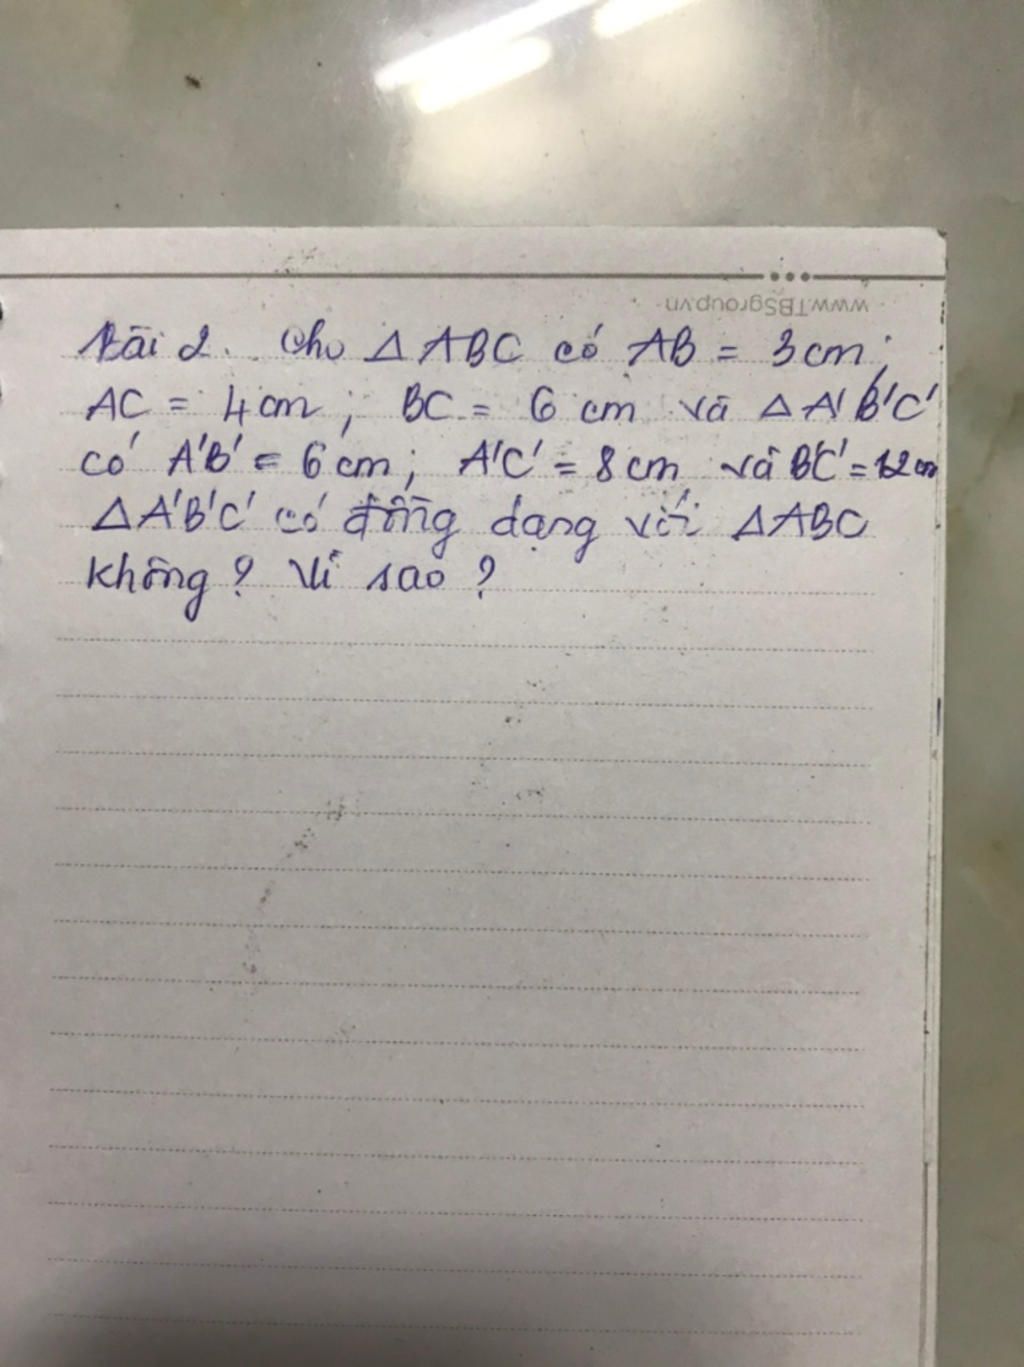 www.TBSgroup.vn
Bài 2. Cho △ABC có AB = 3cm;
AC = 4cm; BC = 6 cm và △A'B'C'
có A'B' = 6cm; A'C' = 8cm và B'C' = 12cm
△A'B'C' có đồng dạng với △ABC
không? Vì sao?